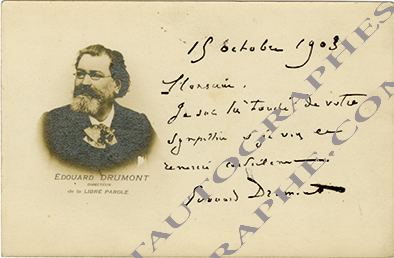 15 octobre 1903
Monsieur,
Je suis très touché de votre
sympathie et je vous en
remercie cordialement
Edouard Drumont
EDOUARD DRUMONT
DIRECTEUR
de la LIBRE PAROLE
AUTOGRAPHES